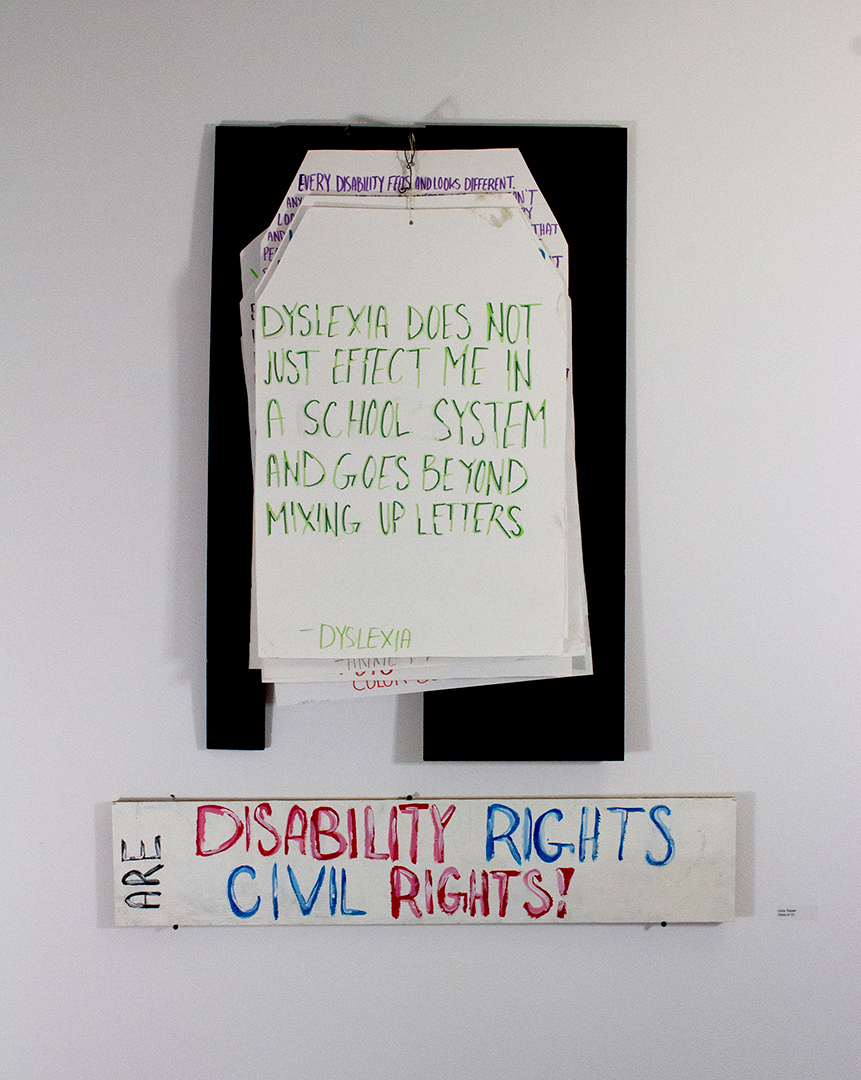 EVERY DISABILITY FEELS AND LOOKS DIFFERENT.
ANY
N'T
AND
THAT
DYSLEXIA DOES NOT
JUST EFFECT ME IN
A SCHOOL SYSTEM
AND GOES BEYOND
MIXING UP LETTERS
-DYSLEXIA
COLOR
ARE
DISABILITY RIGHTS
CIVIL RIGHTS!